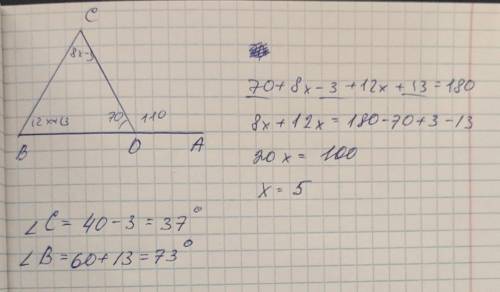 C
8x-3
12x+13
70
110
B
D
A
70+8x-3+12x+13=180
8x+12x=180-70+3-13
20x=100
x=5
∠C=40-3=37°
∠B=60+13=73°